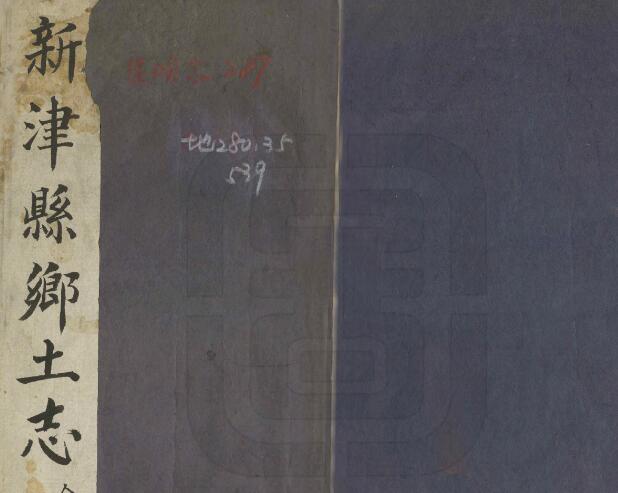 新津縣鄉土志
地280.35
539